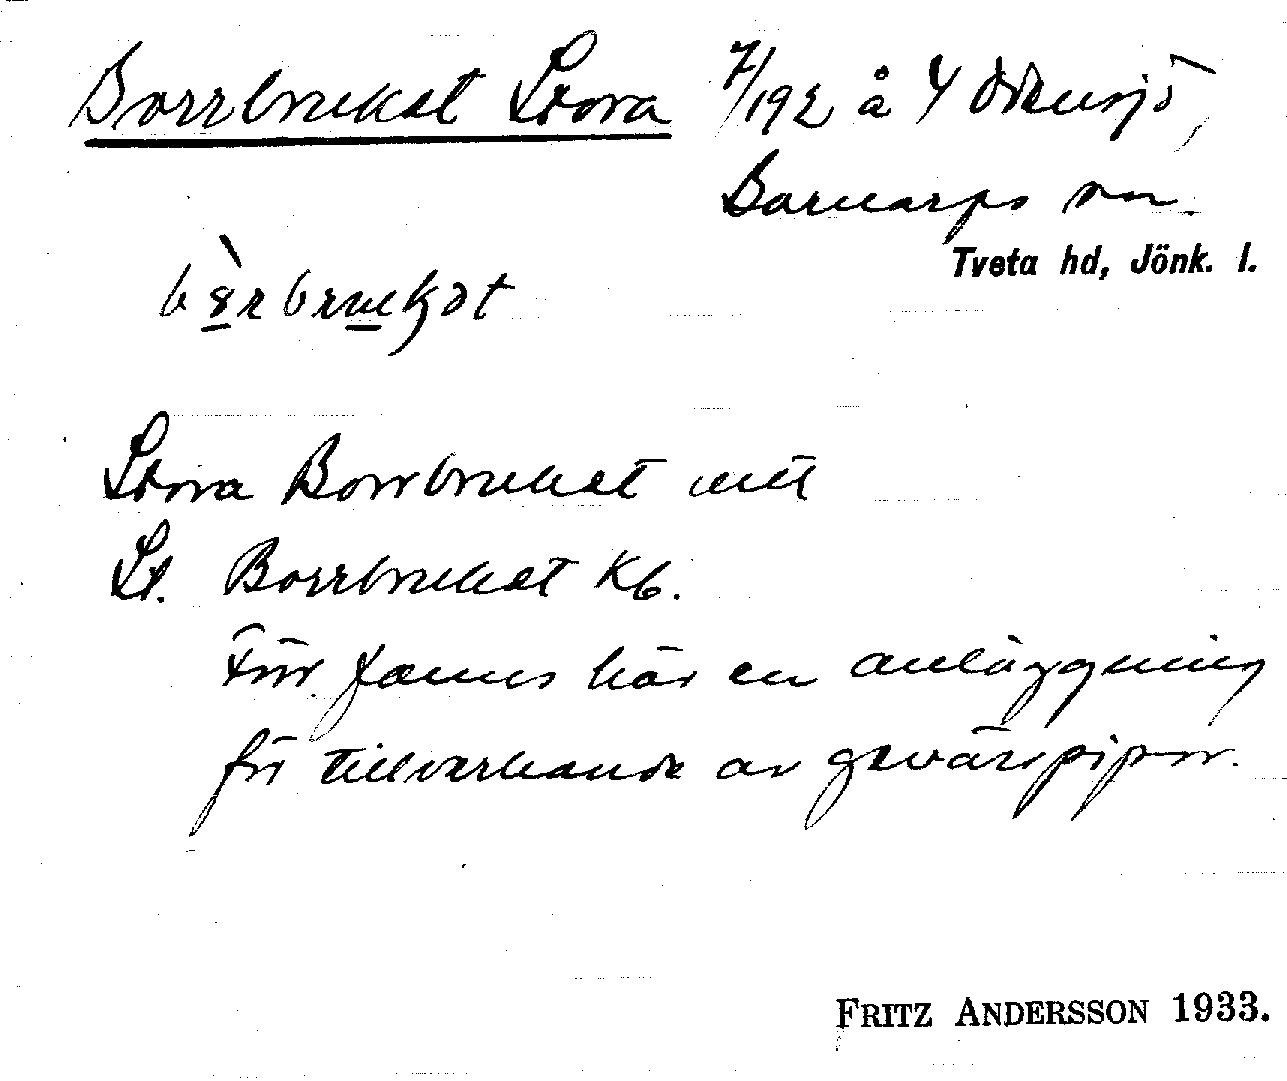 Borrbruket Stora 7/192 å Y Ödensjö,
Barnarps sn.
Tveta hd, Jönk. l.
Stora Borrbruket intill
St. Borrbruket Kb.
Förr fanns här en anläggning
för tillverkande av gevärspipor.
FRITZ ANDERSSON 1933.